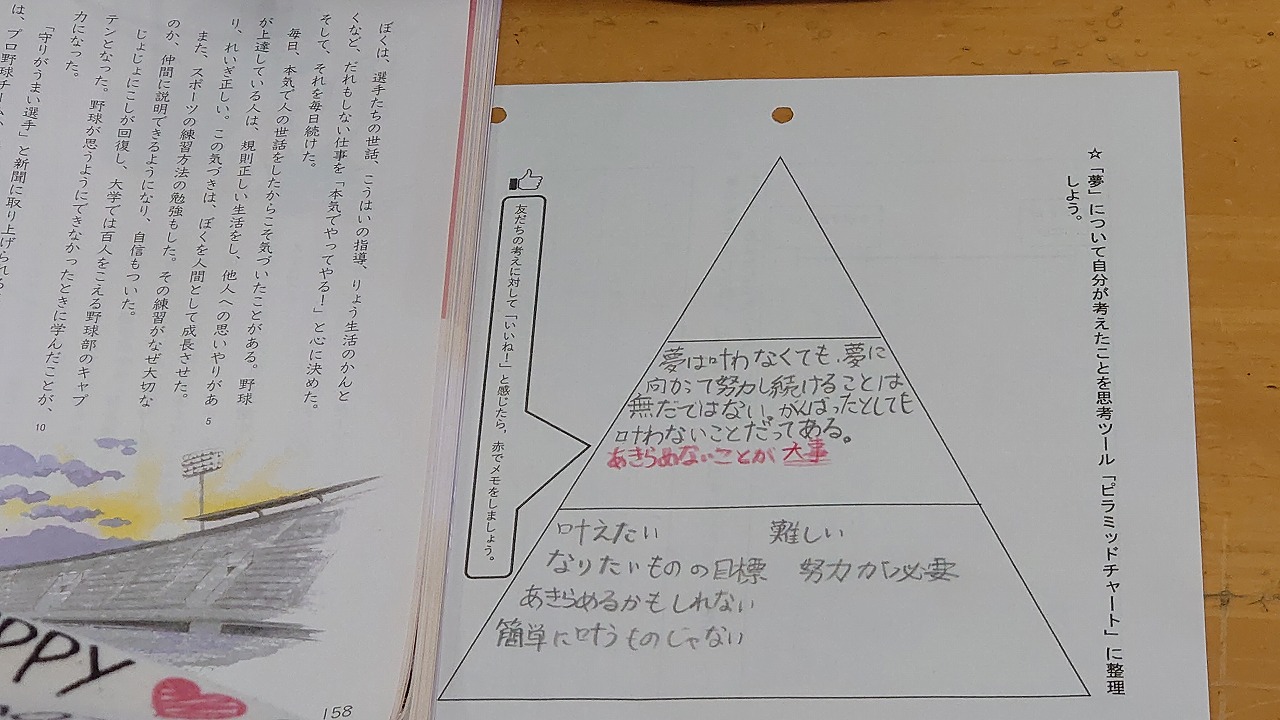 ☆「夢」について自分が考えたことを思考ツール「ピラミッドチャート」に整理
しよう。
夢は叶わなくても、夢に
向かって努力し続けることは
無だではない。がんばったとしても
叶わないことだってある。
あきらめないことが大事
叶えたい 難しい
なりたいものの目標 努力が必要
あきらめるかもしれない
簡単に叶うものじゃない
友だちの考えに対して「いいね!」と感じたら、赤でメモをしましょう。
ぼくは、選手たちの世話、こうはいの指導、りょう生活のかんと
くなど、だれもしない仕事を「本気でやってやる!」と心に決めた。
そして、それを毎日続けた。
毎日、本気で人の世話をしたからこそ気づいたことがある。野球
が上達している人は、規則正しい生活をし、他人への思いやりがあ
り、れいぎ正しい。この気づきは、ぼくを人間として成長させた。
また、スポーツの練習方法の勉強もした。その練習がなぜ大切な
のか、仲間に説明できるようになり、自信もついた。
じょじょにこしが回復し、大学では百人をこえる野球部のキャプ
テンとなった。野球が思うようにできなかったときに学んだことが、
力になった。
「守りがうまい選手」と新聞に取り上げられる
は、プロ野球チーム
5
10
ppy
158